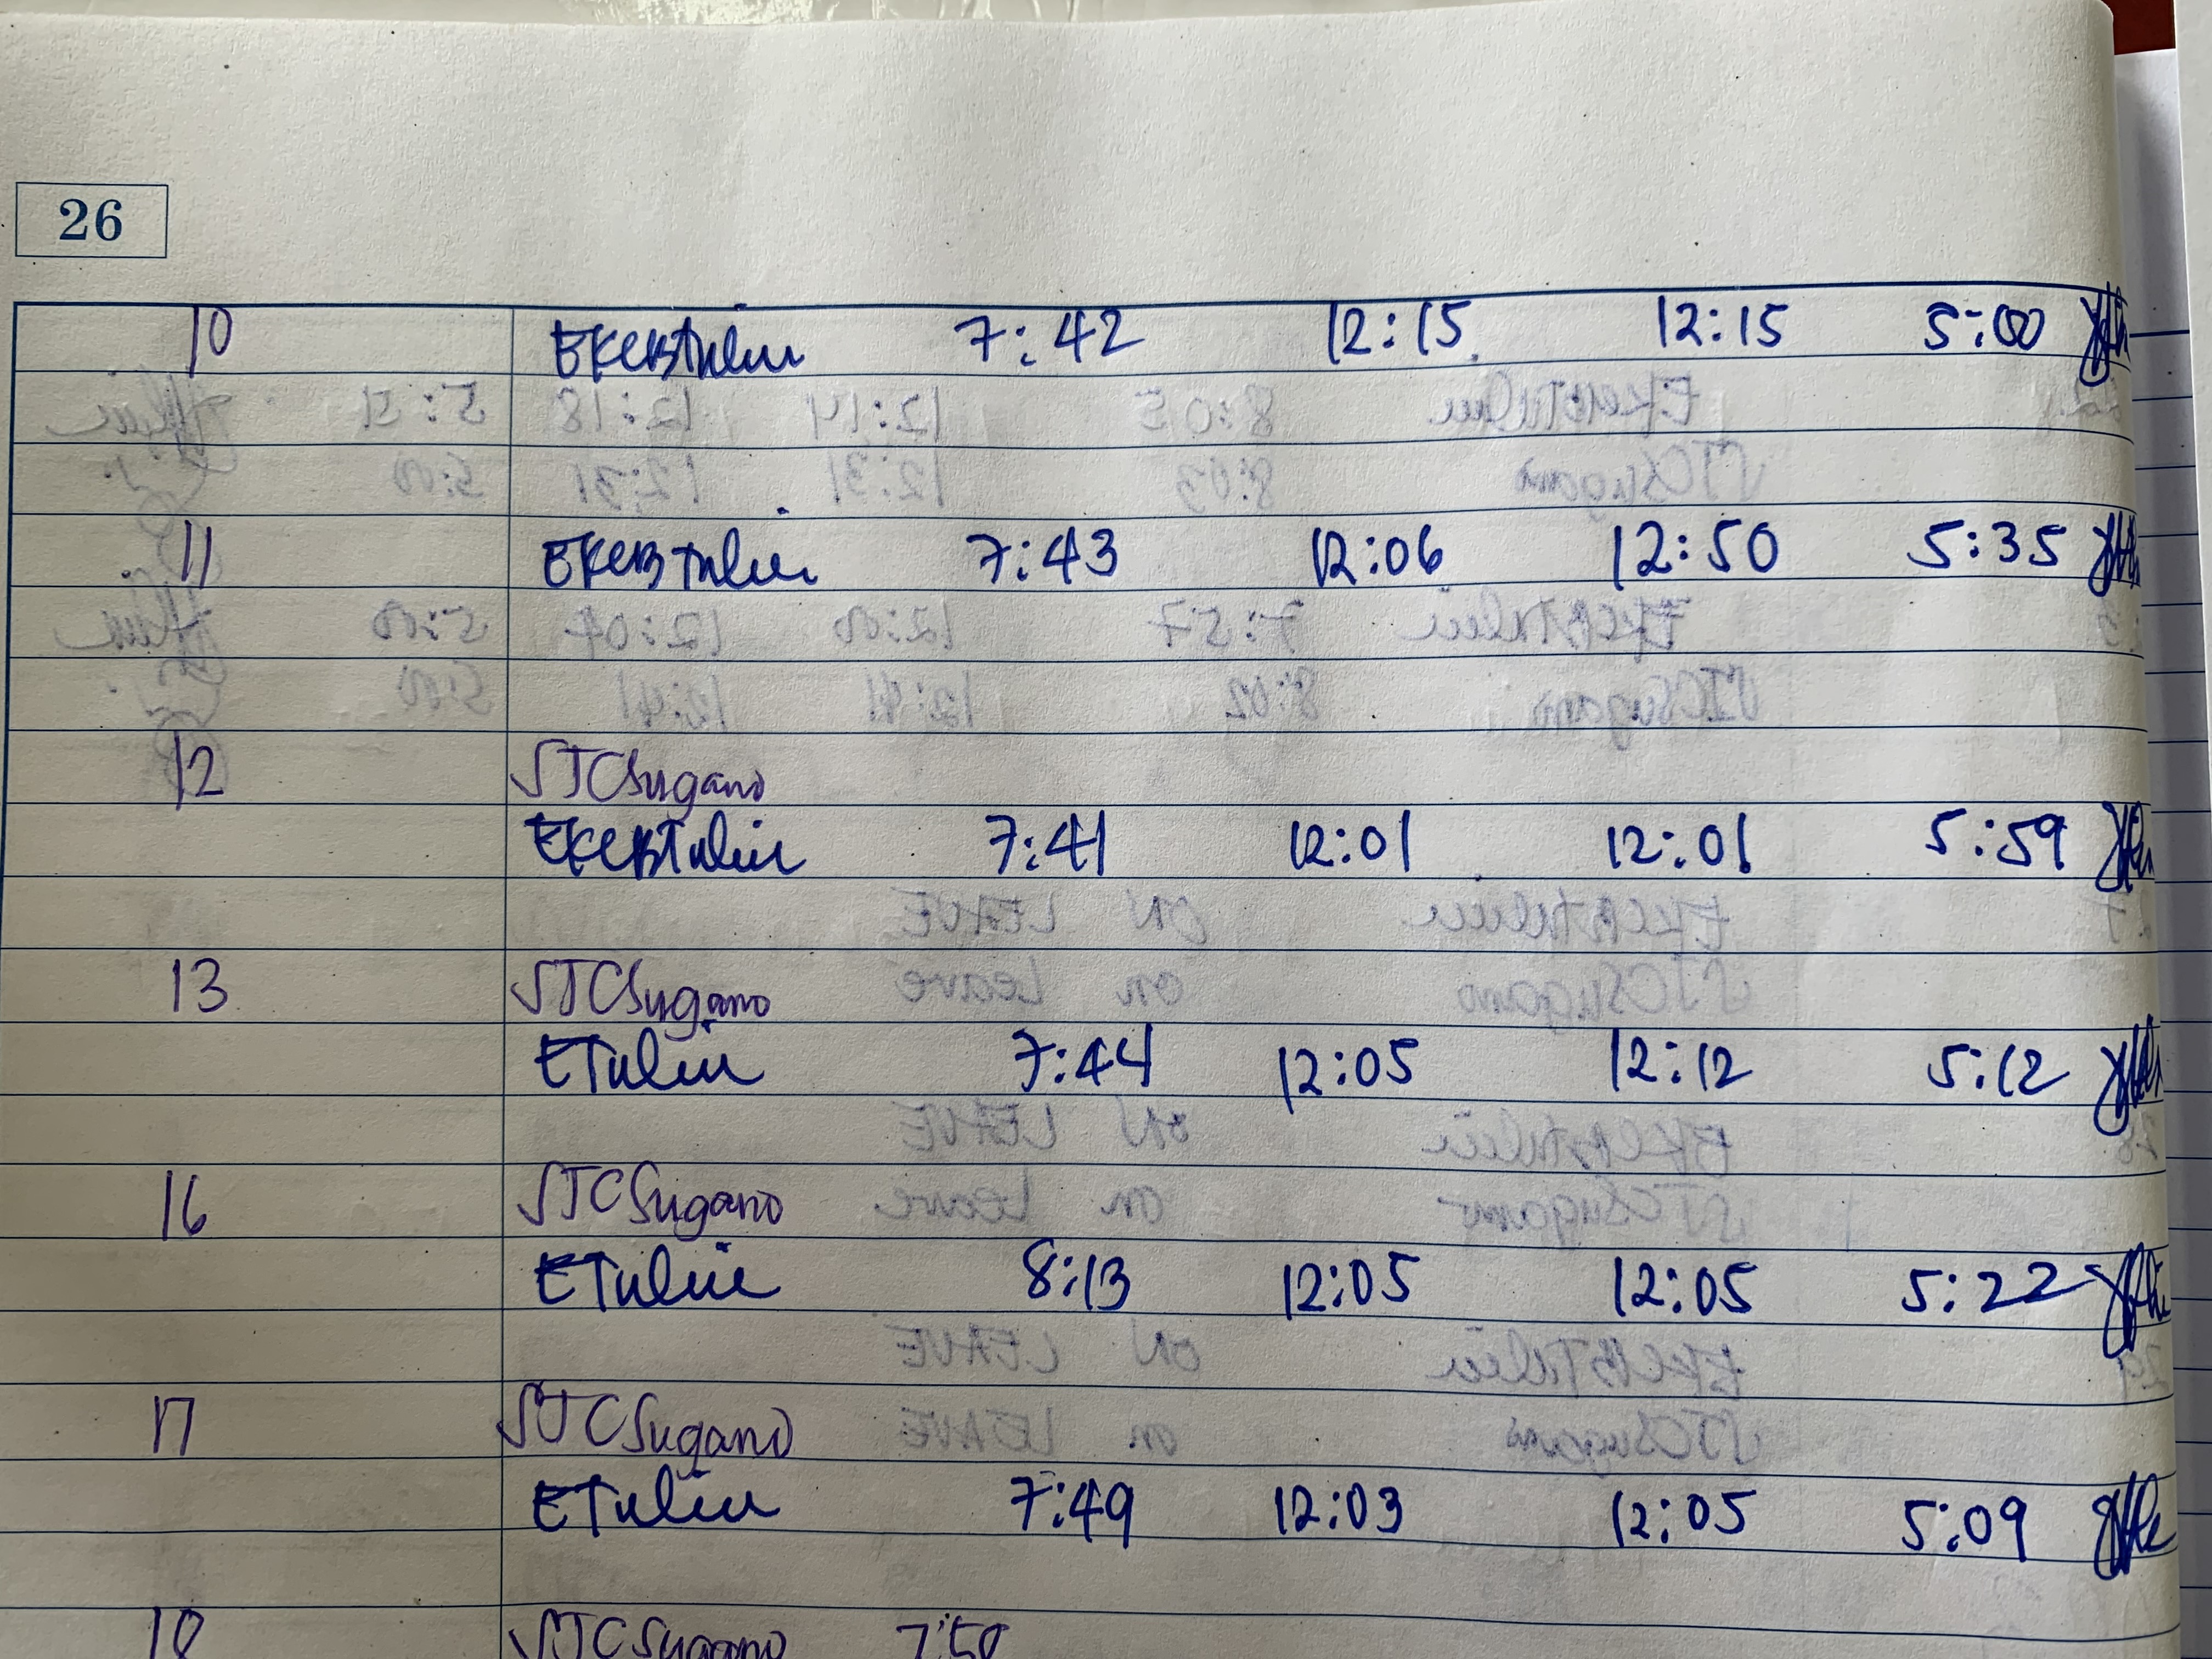 26
10 EKCBTulin 7:42 12:15 12:15 5:00
11 EKCBTulin 7:43 12:06 12:50 5:35
12 SJCSugano
EKCBTulin 7:41 12:01 12:01 5:59
13 SJCSugano
ETulin 7:44 12:05 12:12 5:12
16 SJCSugano
ETulin 8:13 12:05 12:05 5:22
17 SJCSugano
ETulin 7:49 12:03 12:05 5:09
18 SJCSugano 7:58